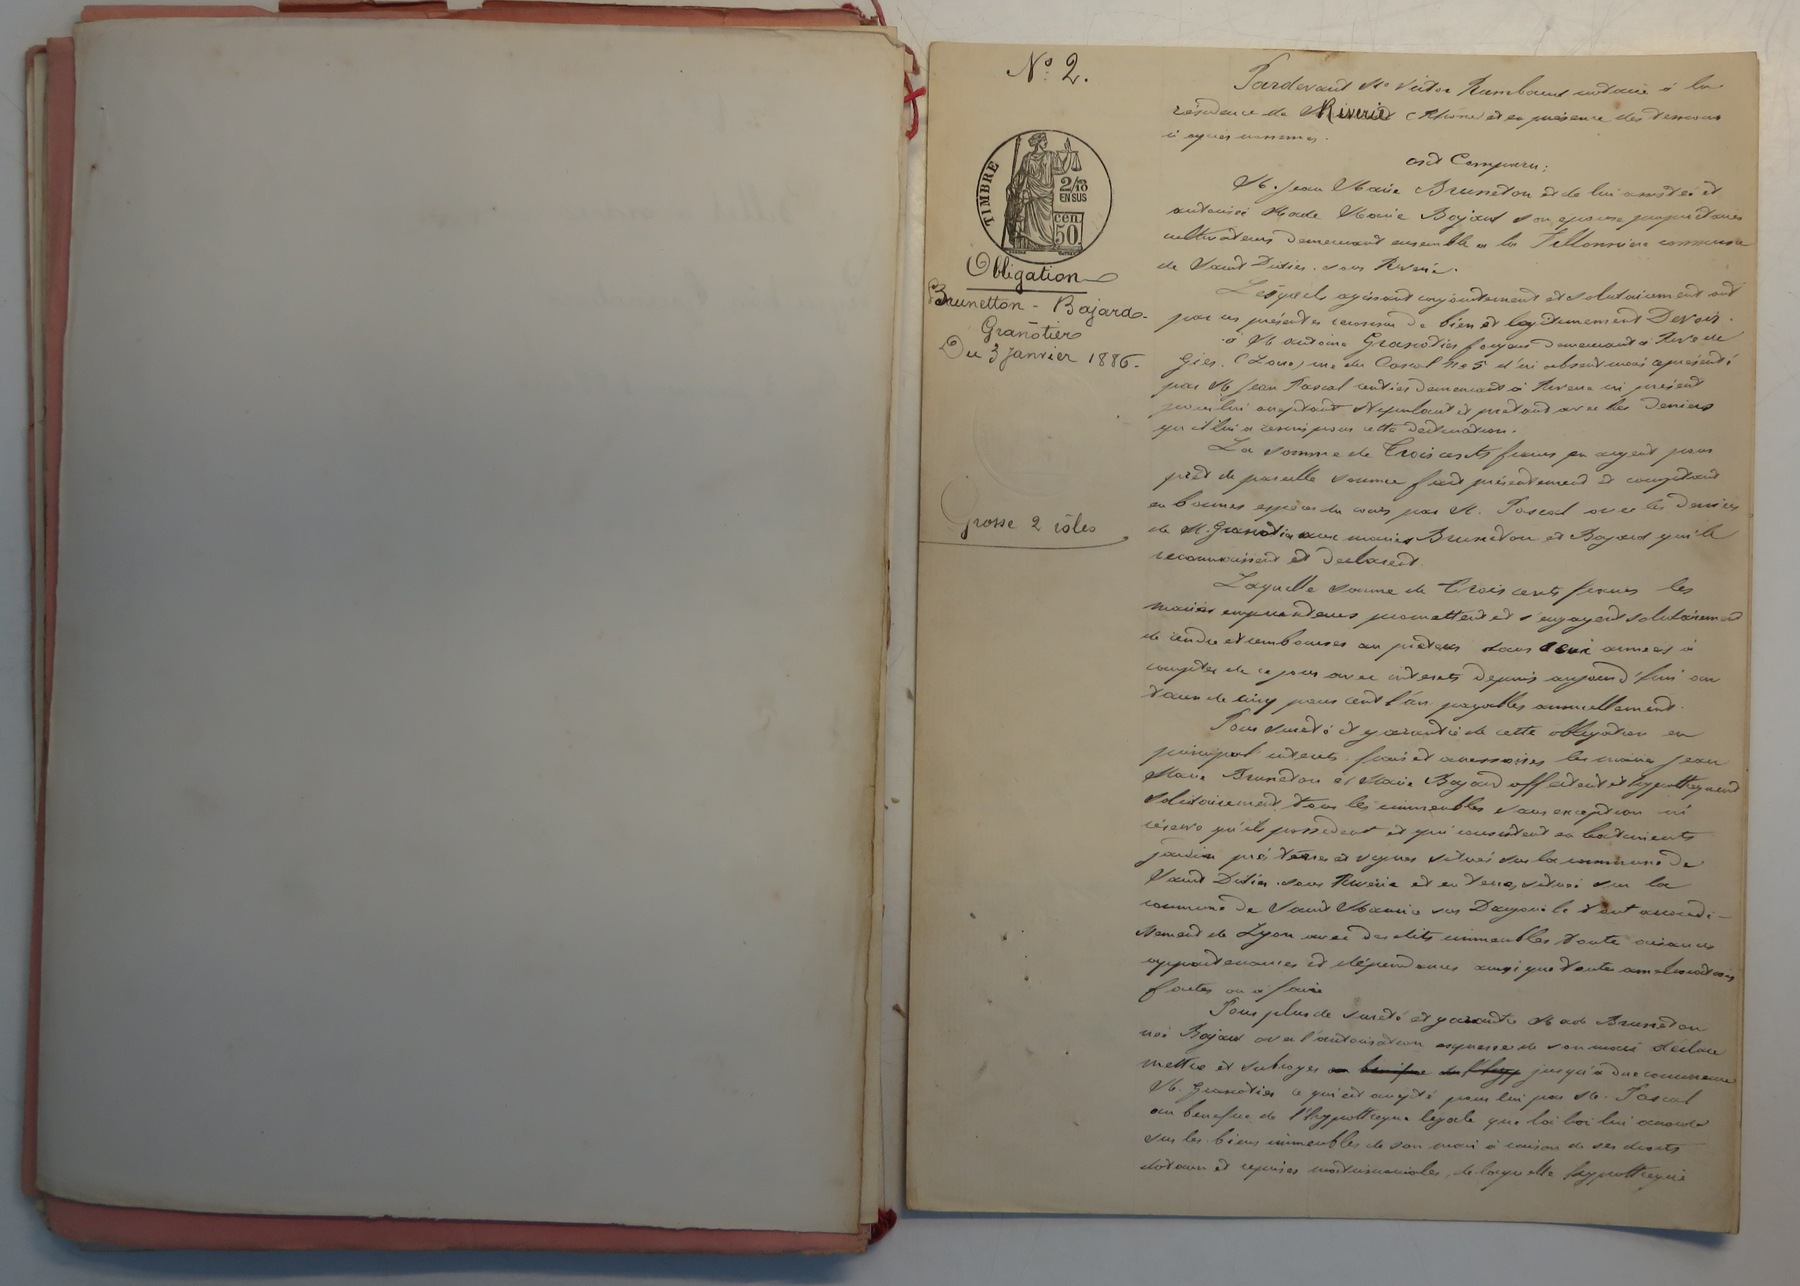 N° 2.
TIMBRE
2/10
EN SUS
cen
50
Obligation
Brunetton - Bajard
Granotier
Du 3 Janvier 1886.
Grosse 2 rôles
Pardevant Me Victor Rambaud notaire à la
résidence de Riverie (Rhône) et en présence des témoins
ci après nommés.
ont Comparu:
M. Jean Marie Brunetton et de lui assistée et
autorisée Made Marie Bajard son épouse propriétaires
cultivateurs demeurant ensemble à la commune
de Saint Didier sous Riverie.
Lesquels agissant conjointement et solidairement ont
par ces présentes reconnu de bien et légitimement Devoir.
à M. Antoine Granotier demeurant à Rive de
Gier. (Loire) rue du Canal n° 5 d'ici absent mais représenté
par M. Jean Pascal rentier demeurant à Riverie ici présent
pour lui acceptant stipulant et prêtant avec les deniers
qu'il lui a remis pour cette destination.
La somme de Trois cents francs en argent pour
prêt de pareille somme fait présentement et comptant
en bonnes espèces du cours par M. Pascal avec les deniers
de M. Granotier aux mariés Brunetton et Bajard qui le
reconnaissent et déclarent.
Laquelle somme de Trois cents francs les
mariés emprunteurs promettent et s'engagent solidairement
de rendre et rembourser au prêteur dans deux années à
compter de ce jour avec intérêts depuis aujourd'hui au
taux de cinq pour cent l'an payables annuellement.
Pour sureté et garantie de cette obligation en
principal intérêts frais et accessoires les mariés Jean
Marie Brunetton et Marie Bajard affectent et hypothèquent
solidairement tous les immeubles sans exception ni
réserve qu'ils possèdent et qui consistent en bâtiments
jardin prés terres et vignes situés sur la commune de
Saint Didier sous Riverie et en terres situés sur la
commune de Saint Maurice sur Dargoire le tout arrondi-
ssement de Lyon avec desdits immeubles toute aisances
appartenances et dépendances ainsi que toutes améliorations
faites ou à faire
Pour plus de sureté et garantie Made Brunetton
née Bajard avec l'autorisation expresse de son mari déclare
mettre et subroger jusqu'à due concurrence
M. Granotier ce qui est accepté pour lui par M. Pascal
au bénéfice de l'hypothèque légale que la loi lui accorde
sur les biens immeubles de son mari à raison de ses droits
dotaux et reprises matrimoniales, de laquelle hypothèque